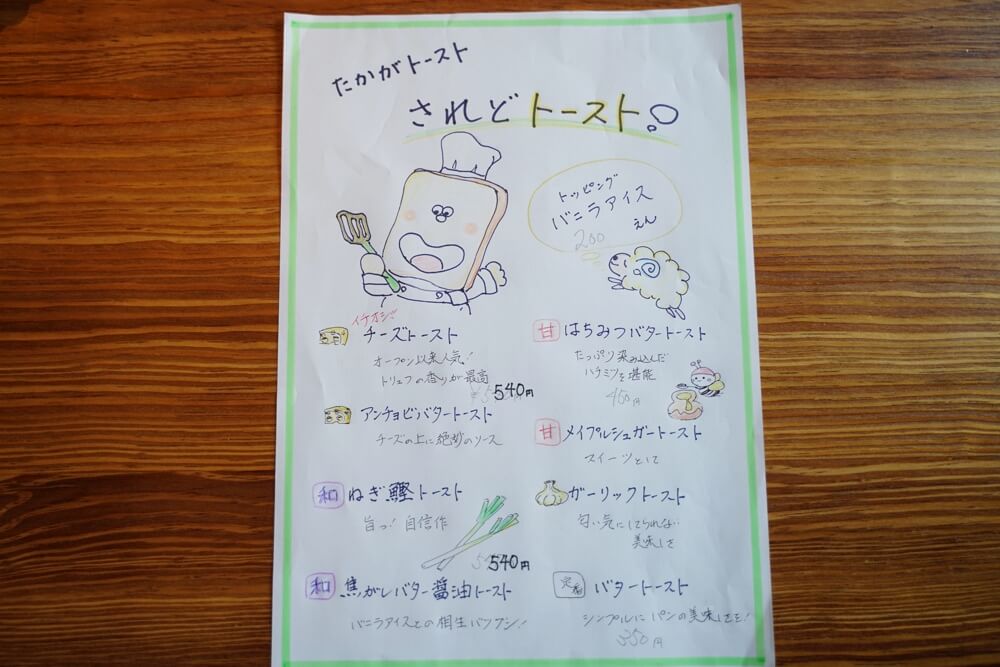 たかがトースト
されどトースト。
トッピング
バニラアイス
200 えん
イチオシ!
チーズトースト
オープン以来人気!
トリュフの香りが最高
540円
アンチョビバタートースト
チーズの上に絶妙のソース
和 ねぎ鰹トースト
旨っ!自信作
540円
和 焦がしバター醤油トースト
バニラアイスとの相生バツグン!
甘 はちみつバタートースト
たっぷり染み込んだ
ハチミツを堪能
450円
甘 メイプルシュガートースト
スイーツとして
ガーリックトースト
匂い気にしてられない
美味しさ
定番 バタートースト
シンプルにパンの美味しさを!
350円